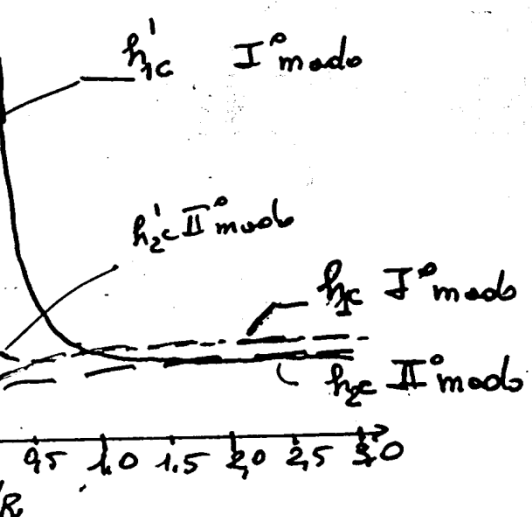 h'1c I° modo
h'2c II° modo
h1c I° modo
h2c II° modo
0,5 1.0 1.5 2,0 2,5 3,0
R